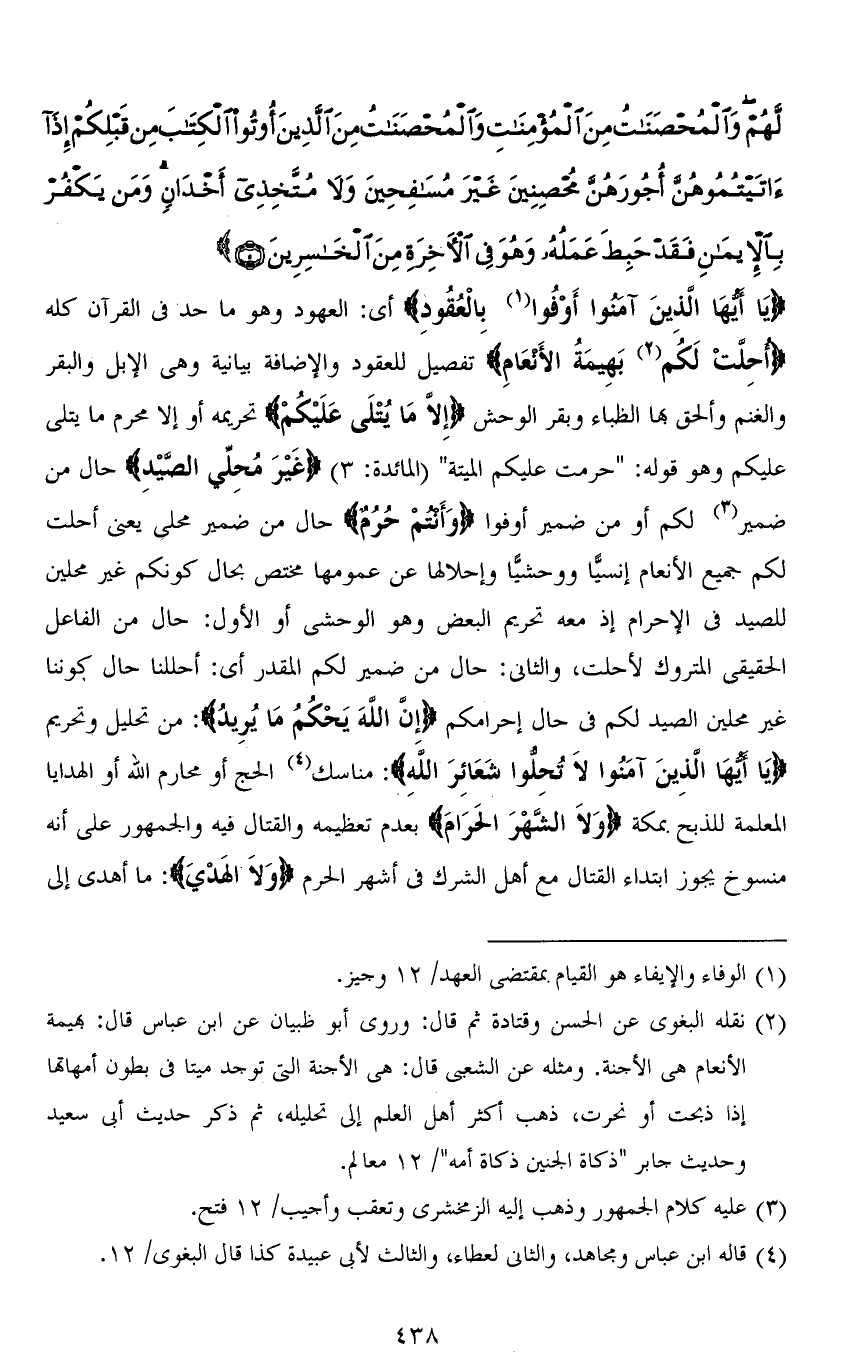 لَّهُمْ ۖ وَٱلْمُحْصَنَٰتُ مِنَ ٱلْمُؤْمِنَٰتِ وَٱلْمُحْصَنَٰتُ مِنَ ٱلَّذِينَ أُوتُوا۟ ٱلْكِتَٰبَ مِن قَبْلِكُمْ إِذَآ
ءَاتَيْتُمُوهُنَّ أُجُورَهُنَّ مُحْصِنِينَ غَيْرَ مُسَٰفِحِينَ وَلَا مُتَّخِذِىٓ أَخْدَانٍ ۗ وَمَن يَكْفُرْ
بِٱلْإِيمَٰنِ فَقَدْ حَبِطَ عَمَلُهُۥ وَهُوَ فِى ٱلْأَخِرَةِ مِنَ ٱلْخَٰسِرِينَ ۝٥﴾
﴿يَا أَيُّهَا الَّذِينَ آمَنُوا أَوْفُوا(١) بِالْعُقُودِ﴾ أى: العهود وهو ما حد فى القرآن كله
﴿أُحِلَّتْ لَكُم(٢) بَهِيمَةُ الأَنْعَامِ﴾ تفصيل للعقود والإضافة بيانية وهى الإبل والبقر
والغنم وألحق بها الظباء وبقر الوحش ﴿إِلاَّ مَا يُتْلَى عَلَيْكُمْ﴾ تحريمه أو إلا محرم ما يتلى
عليكم وهو قوله: "حرمت عليكم الميتة" (المائدة: ٣) ﴿غَيْرَ مُحِلِّي الصَّيْدِ﴾ حال من
ضمير(٣) لكم أو من ضمير أوفوا ﴿وَأَنْتُمْ حُرُمٌ﴾ حال من ضمير محلي يعنى أحلت
لكم جميع الأنعام إنسيًّا ووحشيًّا وإحلالها عن عمومها مختص بحال كونكم غير محلين
للصيد فى الإحرام إذ معه تحريم البعض وهو الوحشى أو الأول: حال من الفاعل
الحقيقى المتروك لأحلت، والثانى: حال من ضمير لكم المقدر أى: أحللنا حال كوننا
غير محلين الصيد لكم فى حال إحرامكم ﴿إِنَّ اللَّهَ يَحْكُمُ مَا يُرِيدُ﴾: من تحليل وتحريم
﴿يَا أَيُّهَا الَّذِينَ آمَنُوا لاَ تُحِلُّوا شَعَائِرَ اللَّهِ﴾: مناسك(٤) الحج أو محارم الله أو الهدايا
المعلمة للذبح بمكة ﴿وَلاَ الشَّهْرَ الحَرَامَ﴾ بعدم تعظيمه والقتال فيه والجمهور على أنه
منسوخ يجوز ابتداء القتال مع أهل الشرك فى أشهر الحرم ﴿وَلاَ الهَدْيَ﴾: ما أهدى إلى
(١) الوفاء والإيفاء هو القيام بمقتضى العهد/ ١٢ وجيز.
(٢) نقله البغوى عن الحسن وقتادة ثم قال: وروى أبو ظبيان عن ابن عباس قال: بهيمة
الأنعام هى الأجنة. ومثله عن الشعبى قال: هى الأجنة التى توجد ميتا فى بطون أمهاتها
إذا ذبحت أو نحرت، ذهب أكثر أهل العلم إلى تحليله، ثم ذكر حديث أبى سعيد
وحديث جابر "ذكاة الجنين ذكاة أمه"/ ١٢ معالم.
(٣) عليه كلام الجمهور وذهب إليه الزمخشرى وتعقب وأجيب/ ١٢ فتح.
(٤) قاله ابن عباس ومجاهد، والثانى لعطاء، والثالث لأبى عبيدة كذا قال البغوى/ ١٢.
٤٣٨